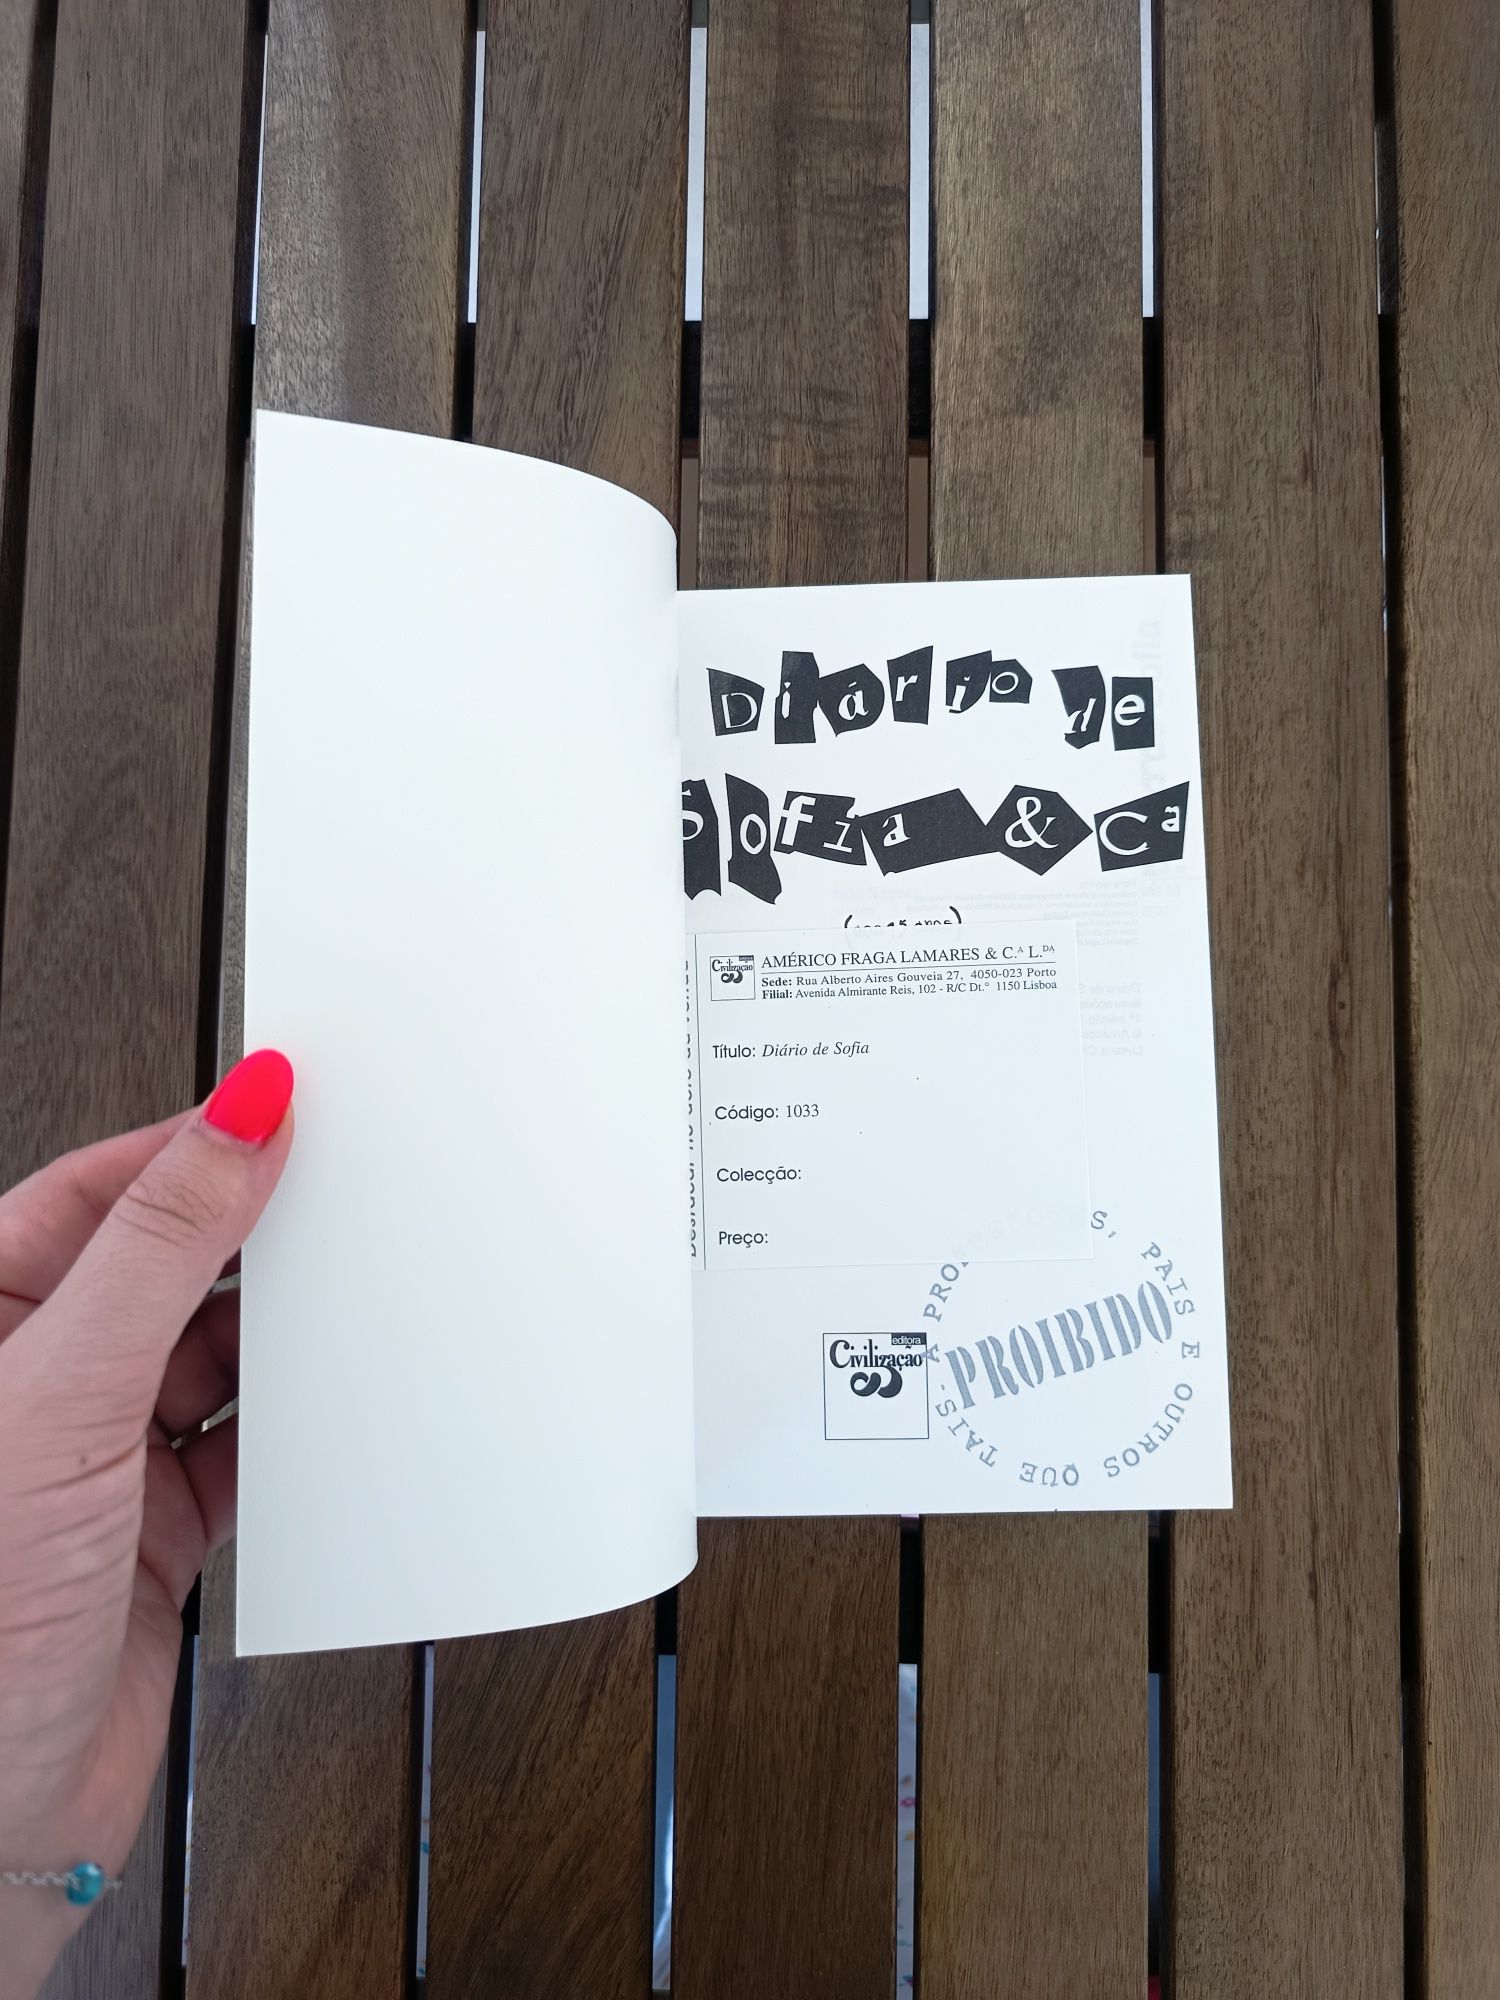 Diário de
Sofia & Cª
editora
Civilização
AMÉRICO FRAGA LAMARES & C.ᴬ L.ᴰᴬ
Sede: Rua Alberto Aires Gouveia 27, 4050-023 Porto
Filial: Avenida Almirante Reis, 102 - R/C Dt.º 1150 Lisboa
Título: Diário de Sofia
Código: 1033
Colecção:
Preço:
editora
Civilização
PROIBIDO
PAIS E OUTROS QUE TAIS